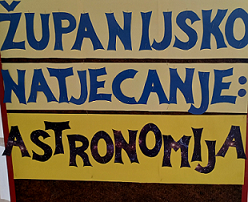 ŽUPANIJSKO
NATJECANJE:
ASTRONOMIJA